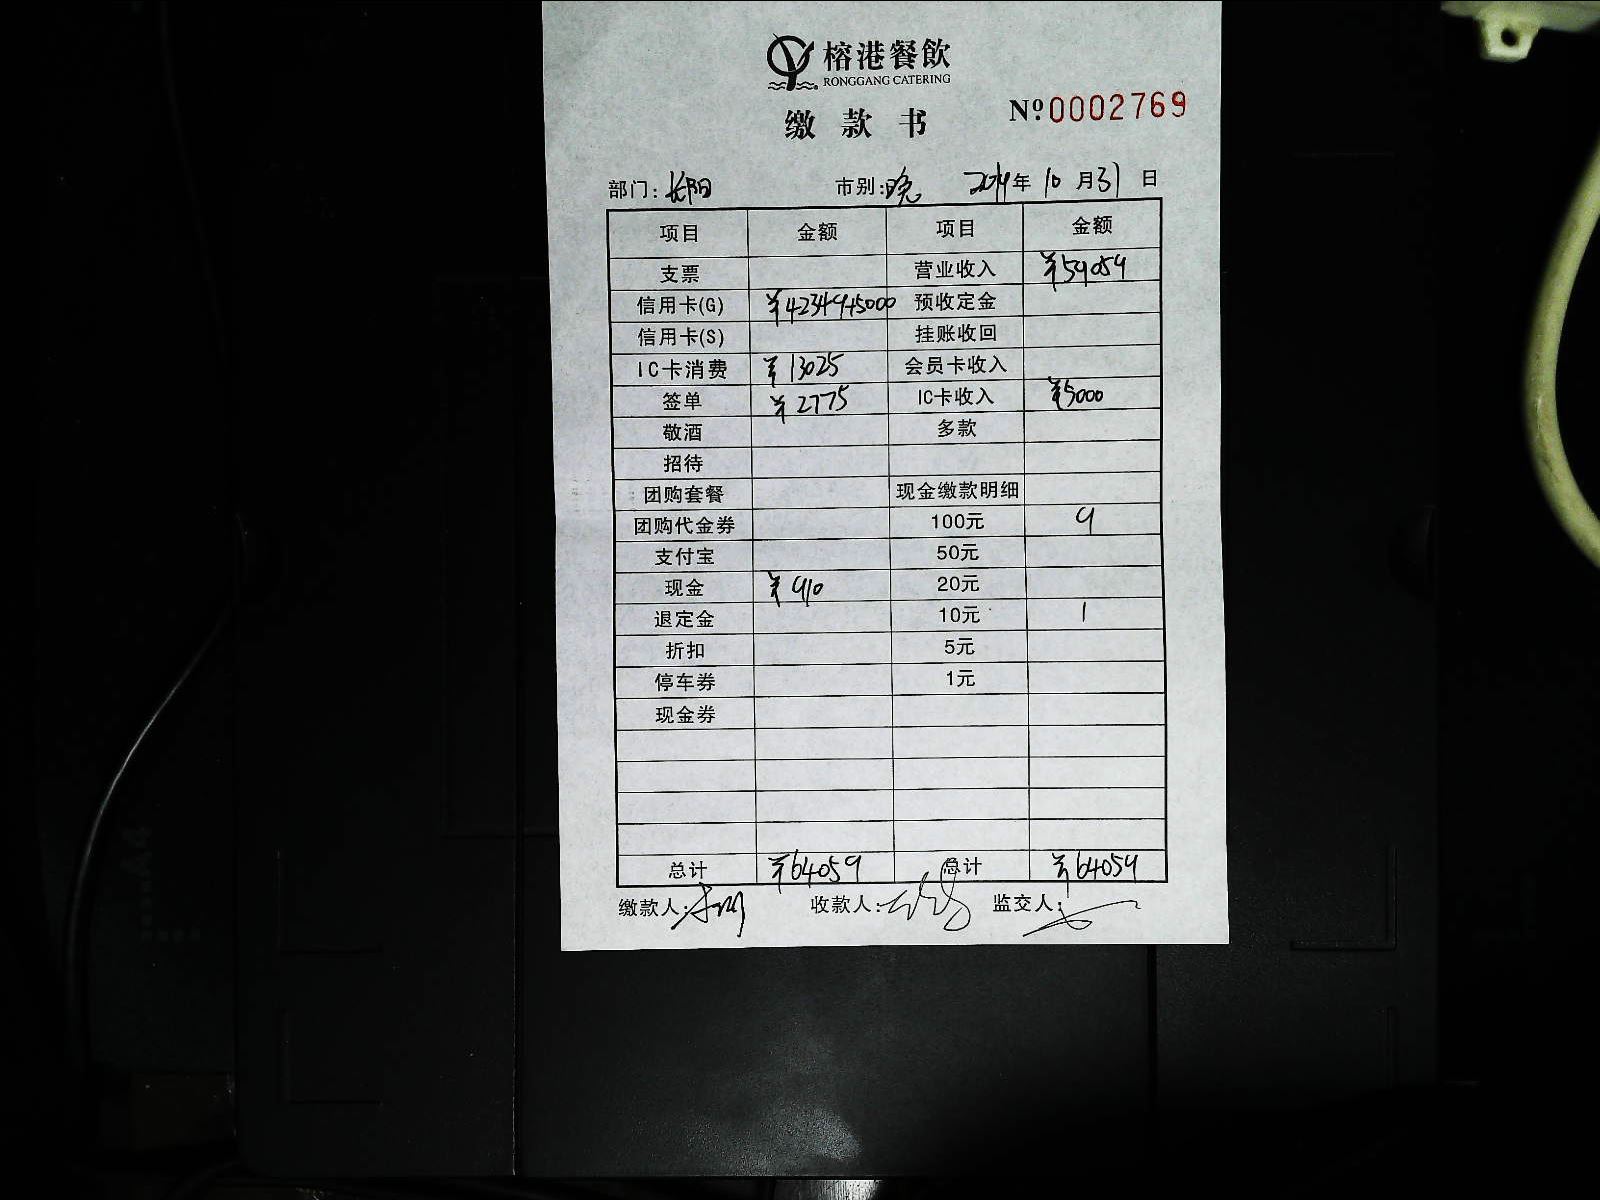 榕港餐飲
RONGGANG CATERING
缴款书 Nº:0002769
部门:长阳 市别:晚 2014年10月31日
项目 金额 项目 金额
支票 营业收入 ¥59059
信用卡(G) ¥42349+5000 预收定金
信用卡(S) 挂账收回
IC卡消费 ¥13025 会员卡收入
签单 ¥2775 IC卡收入 ¥5000
敬酒 多款
招待
团购套餐 现金缴款明细
团购代金券 100元 9
支付宝 50元
现金 ¥910 20元
退定金 10元 1
折扣 5元
停车券 1元
现金券
总计 ¥64059 总计 ¥64059
缴款人: 收款人: 监交人: